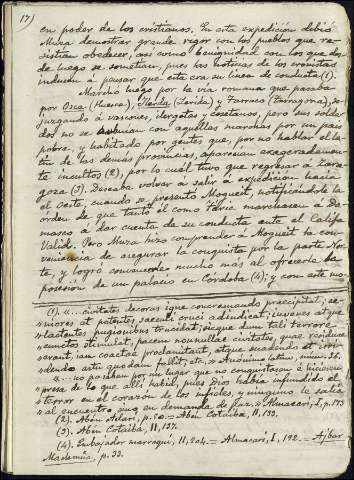 17)
en poder de los cristianos. En esta expedición debió
Muza demostrar grande rigor con los pueblos que re-
sistían obedecer, así como benignidad con los que des-
de luego se sometían, pues las noticias de los cronistas
inducen á pensar que esta era su línea de conducta (1).
Marchó luego por la via romana que pasaba
por Osca (Huesca), Ilerda (Lérida) y Tarraco (Tarragona), so-
juzgando á vascones, ilergetas y cosetanos, pero sus solda-
dos no se con aquellas marchas por un país
pobre, y habitado por gentes que, por no hablar el la-
tín de las demás provincias, aparecían exageradamen-
te incultos (2), por lo cual tuvo que regresar á Zara-
goza (3). Deseaba volver á salir de expedición hacia
el Oeste, cuando se presentó Mogueit, notificándole la
orden de que tanto él como Táric marchasen á Da-
masco á dar cuenta de su conducta ante el Califa
Valid. Pero Muza hizo comprender á Mogueit la con-
veniencia de asegurar la conquista por la parte Nor-
te, y logró convencerle mucho más al ofrecerle la
posesión de un palacio en Córdoba (4); y con este mo-
(1). «... civitates decoras igne concremando praecipitat, se-
niores et potentes saeculi cruci adiudicat, iuvenes atque
lactantes pugionibus trucidat, sicque dum tali terrore
cunctos stimulat, pacem nonnullae civitates, quae residuae
erant, iam coactae proclamitant, atque suadendo et irri-
dendo astu quodam fallit, etc.» Anónimo latino, núm. 36.
«... no pasaban por un lugar que no conquistasen é hiciesen
presa de lo que allí había, pues Dios había infundido el
terror en el corazón de los infieles, y ninguno le salía
al encuentro sino en demanda de paz.» Almacari, I, p. 173
(2). Aben Adari, p. = Aben Cotaiba, II, 133.
(3). Aben Cotaiba, II, 137.
(4). Embajador marroquí, II, 204. = Almacari, I, 192. = Ajbar
Machmúa, p. 33.